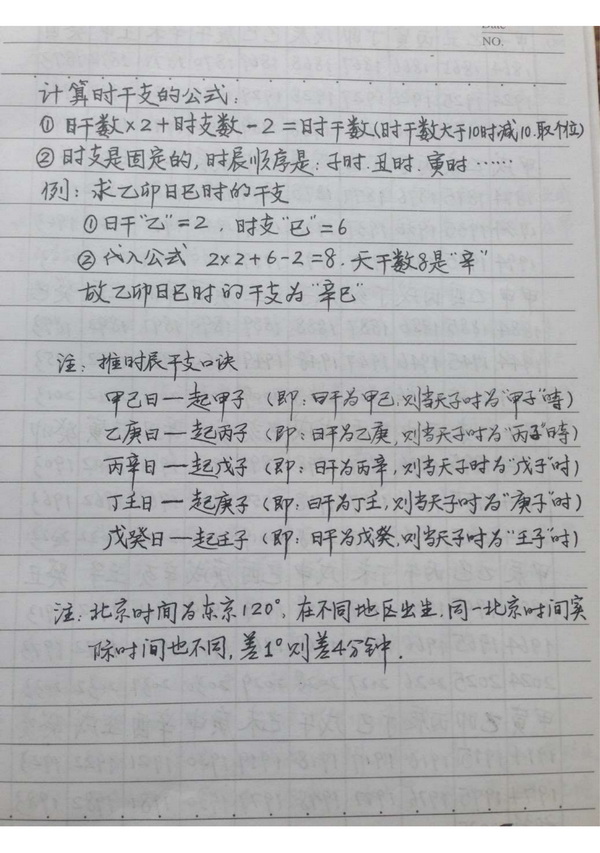 NO.
计算时干支的公式:
① 日干数×2+时支数-2=时干数(时干数大于10时减10.取个位)
② 时支是固定的,时辰顺序是:子时.丑时.寅时……
例:求乙卯日巳时的干支
①日干"乙"=2,时支"巳"=6
② 代入公式 2×2+6-2=8.天干数8是"辛"
故乙卯日巳时的干支为"辛巳"
注:推时辰干支口诀
甲己日一起甲子 (即:日干为甲己,则当天子时为"甲子"時)
乙庚日一起丙子 (即:日干为乙庚,则当天子时为"丙子"時)
丙辛日一起戊子 (即:日干为丙辛,则当天子时为"戊子"时)
丁壬日一起庚子 (即:日干为丁壬,则当天子时为"庚子"时)
戊癸日一起壬子 (即:日干为戊癸,则当天子时为"壬子"时)
注:北京时间为东京120°,在不同地区出生,同一北京时间实
际时间也不同,差1°则差4分钟.